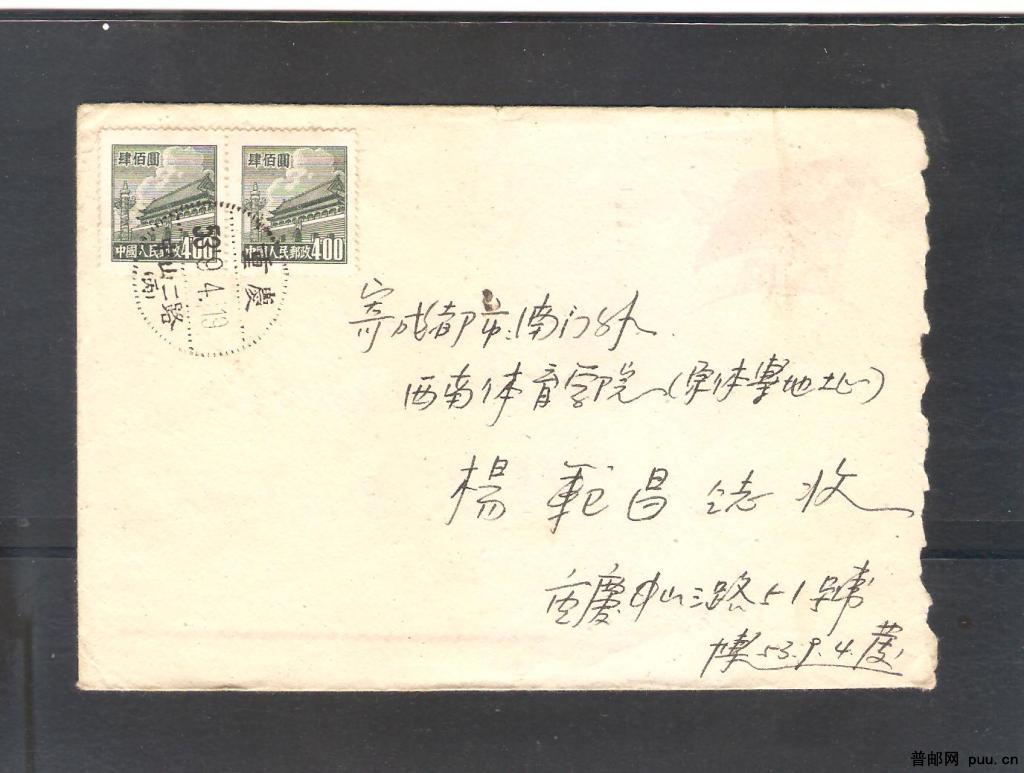 肆佰圓 肆佰圓
中國人民郵政400 中國人民郵政400
重慶
53.9.4.19
中山二路
(丙)
寄成都市南门外
西南体育学院(
楊範昌 同志收
重慶中山三路51號
53.9.4.
普邮网 puu.cn